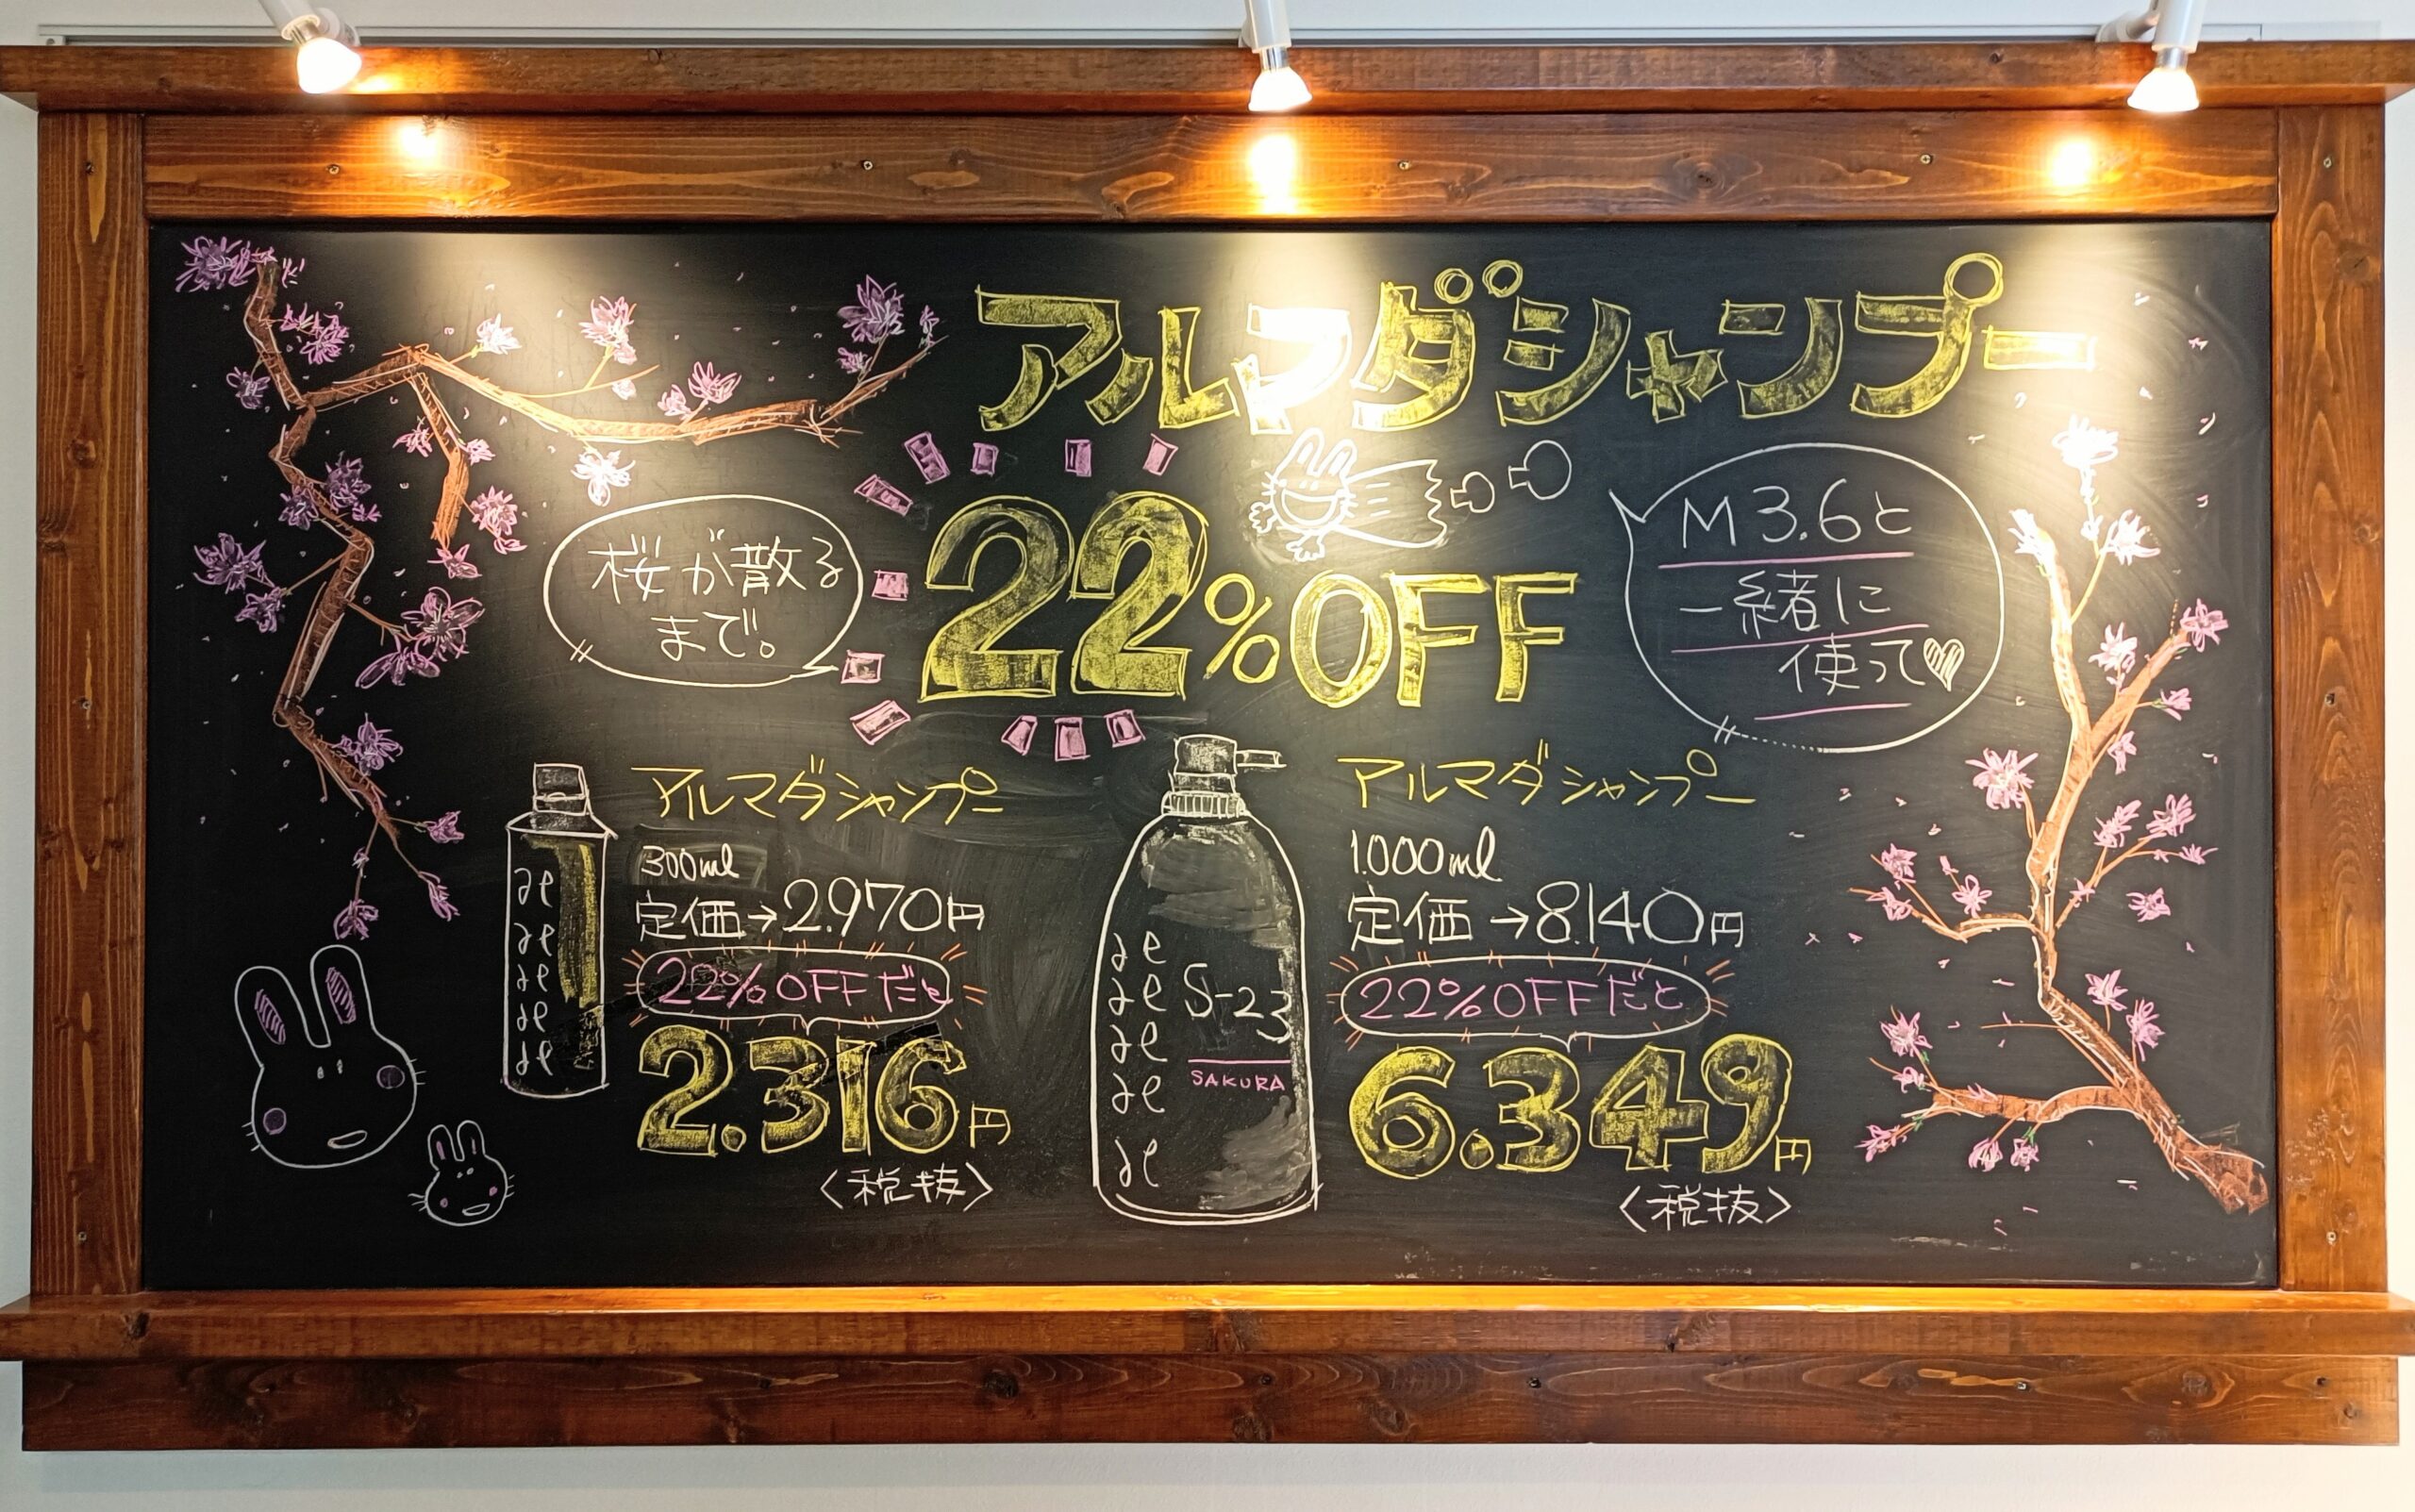 アルマダシャンプー
桜が散る
まで。
22%OFF
M3.6と
一緒に
使って♡
アルマダシャンプー
300ml
定価→2.970円
22%OFFだと
2.316円
〈税抜〉
S-23
SAKURA
アルマダシャンプー
1.000ml
定価→8.140円
22%OFFだと
6.349円
〈税抜〉